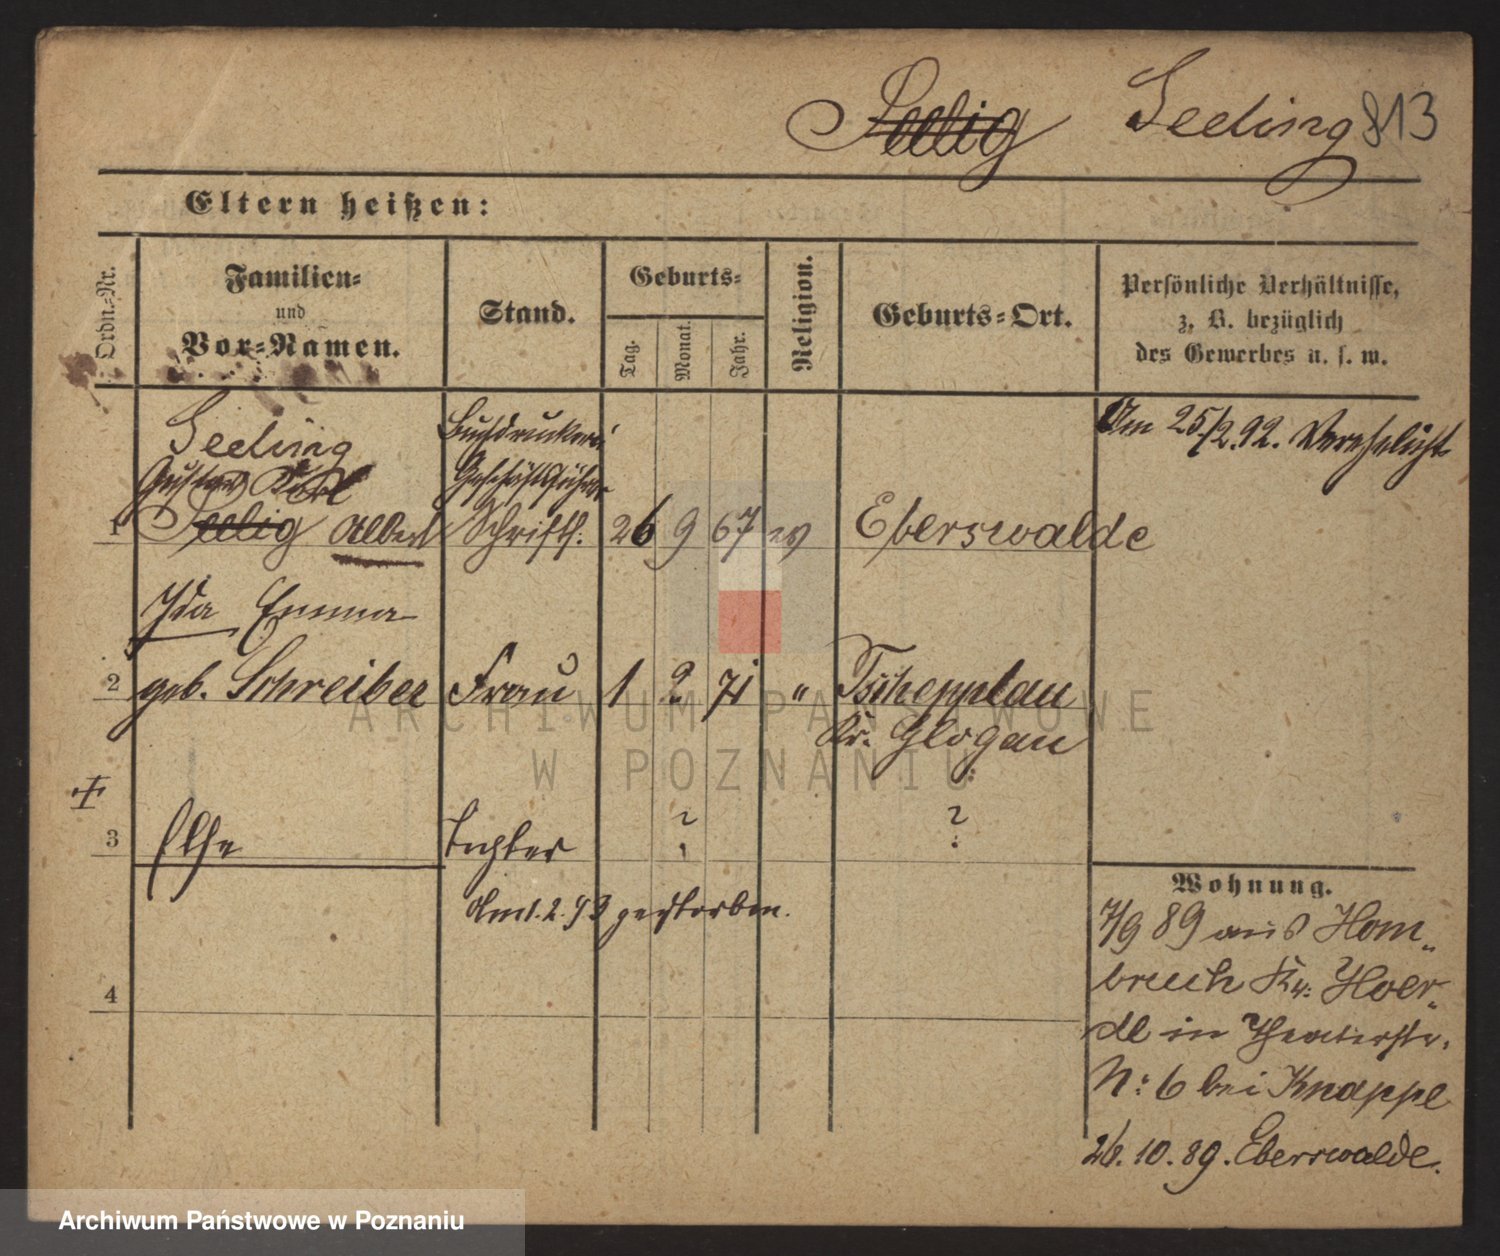 Seelig Seeling 813
Eltern heißen:
Ordn.-Nr.
Familien-
und
Vor-Namen.
Stand.
Geburts-
Tag.
Monat.
Jahr.
Religion.
Geburts-Ort.
Persönliche Verhältnisse,
z. B. bezüglich
des Gewerbes u. s. w.
Seeling
Gustav Karl
1 Seelig Albert
Buchdruckerei
Geschäftsführer
Schriftf. 26 9 67 ev Eberswalde
Am 25/2.92. Verehelicht
Ida Emma
2 geb. Schreiber Frau 1 2 71 " Tschepplau
Kr. Glogau
3 Else Tochter ? ?
Am 1. 2. 93 gestorben.
4
Wohnung.
7/9 89 aus Hom-
bruch Kr. Hoer-
de in Theaterstr.
N: 6 bei Knappe
26. 10. 89. Eberswalde.
ARCHIWUM PAŃSTWOWE
W POZNANIU
Archiwum Państwowe w Poznaniu